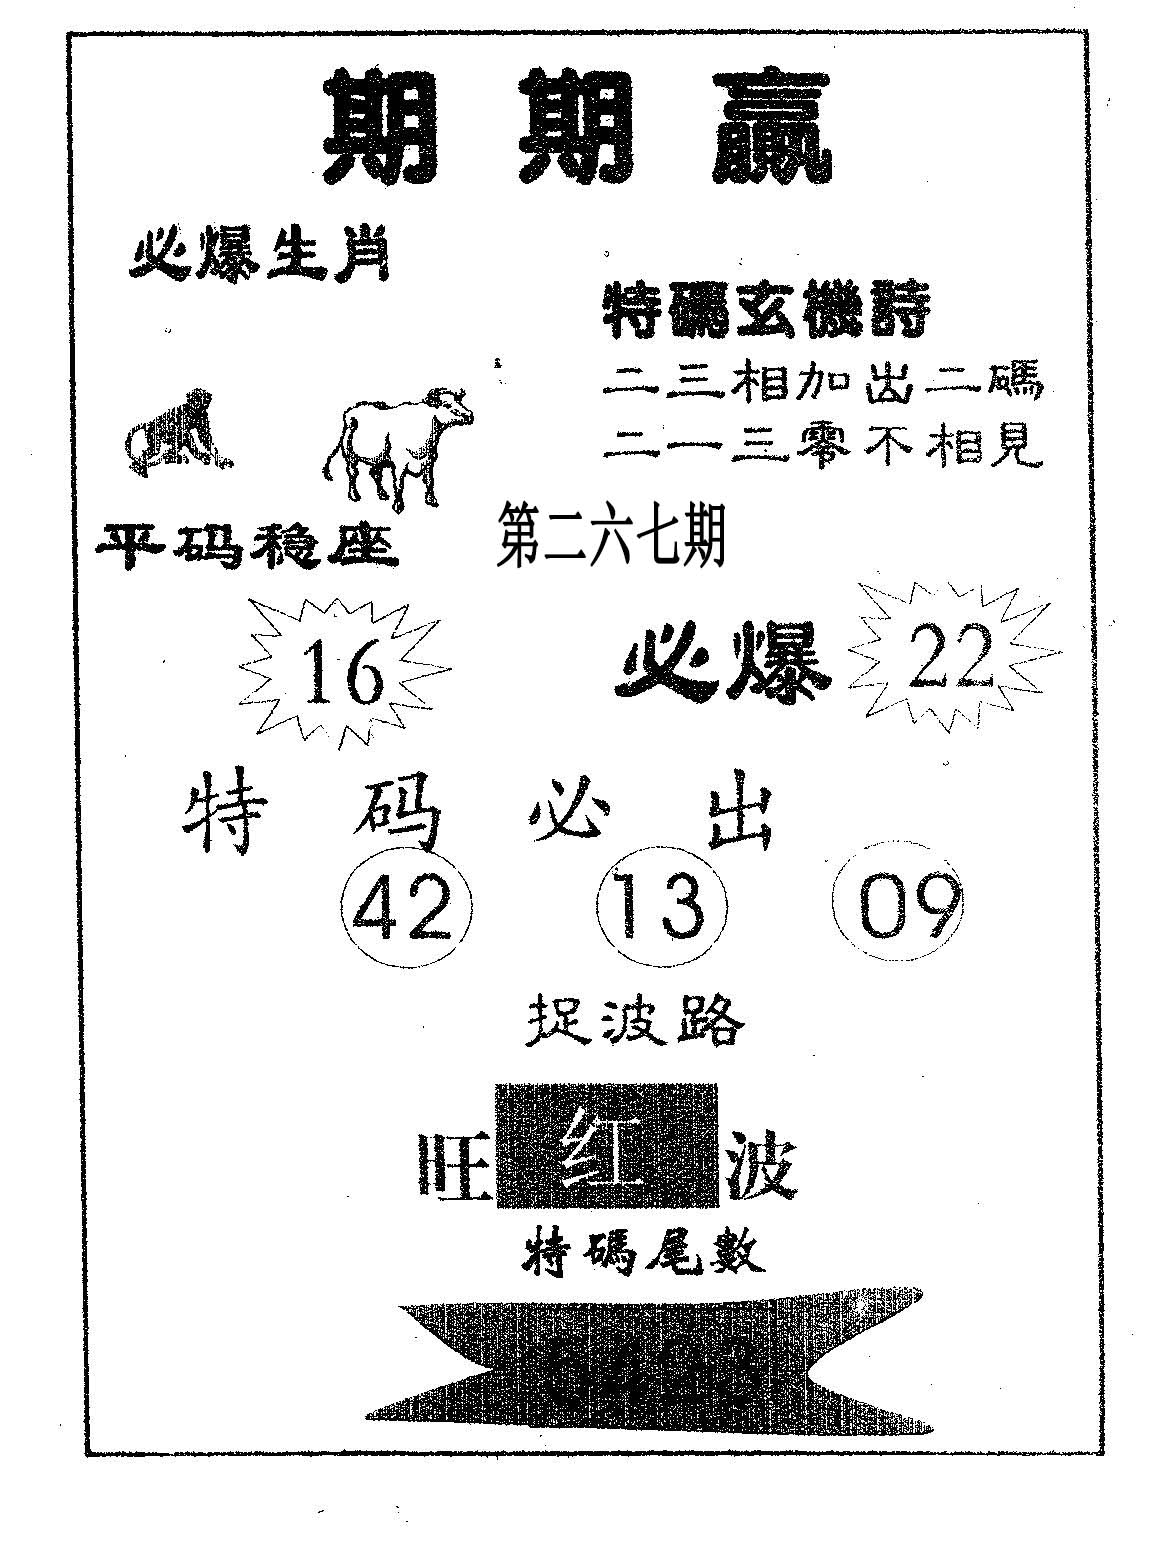 期期赢
必爆生肖
特碼玄機詩
二三相加出二碼
二一三零不相見
平码稳座
第二六七期
16
必爆 22
特码必出
42 13 09
捉波路
旺红波
特碼尾數